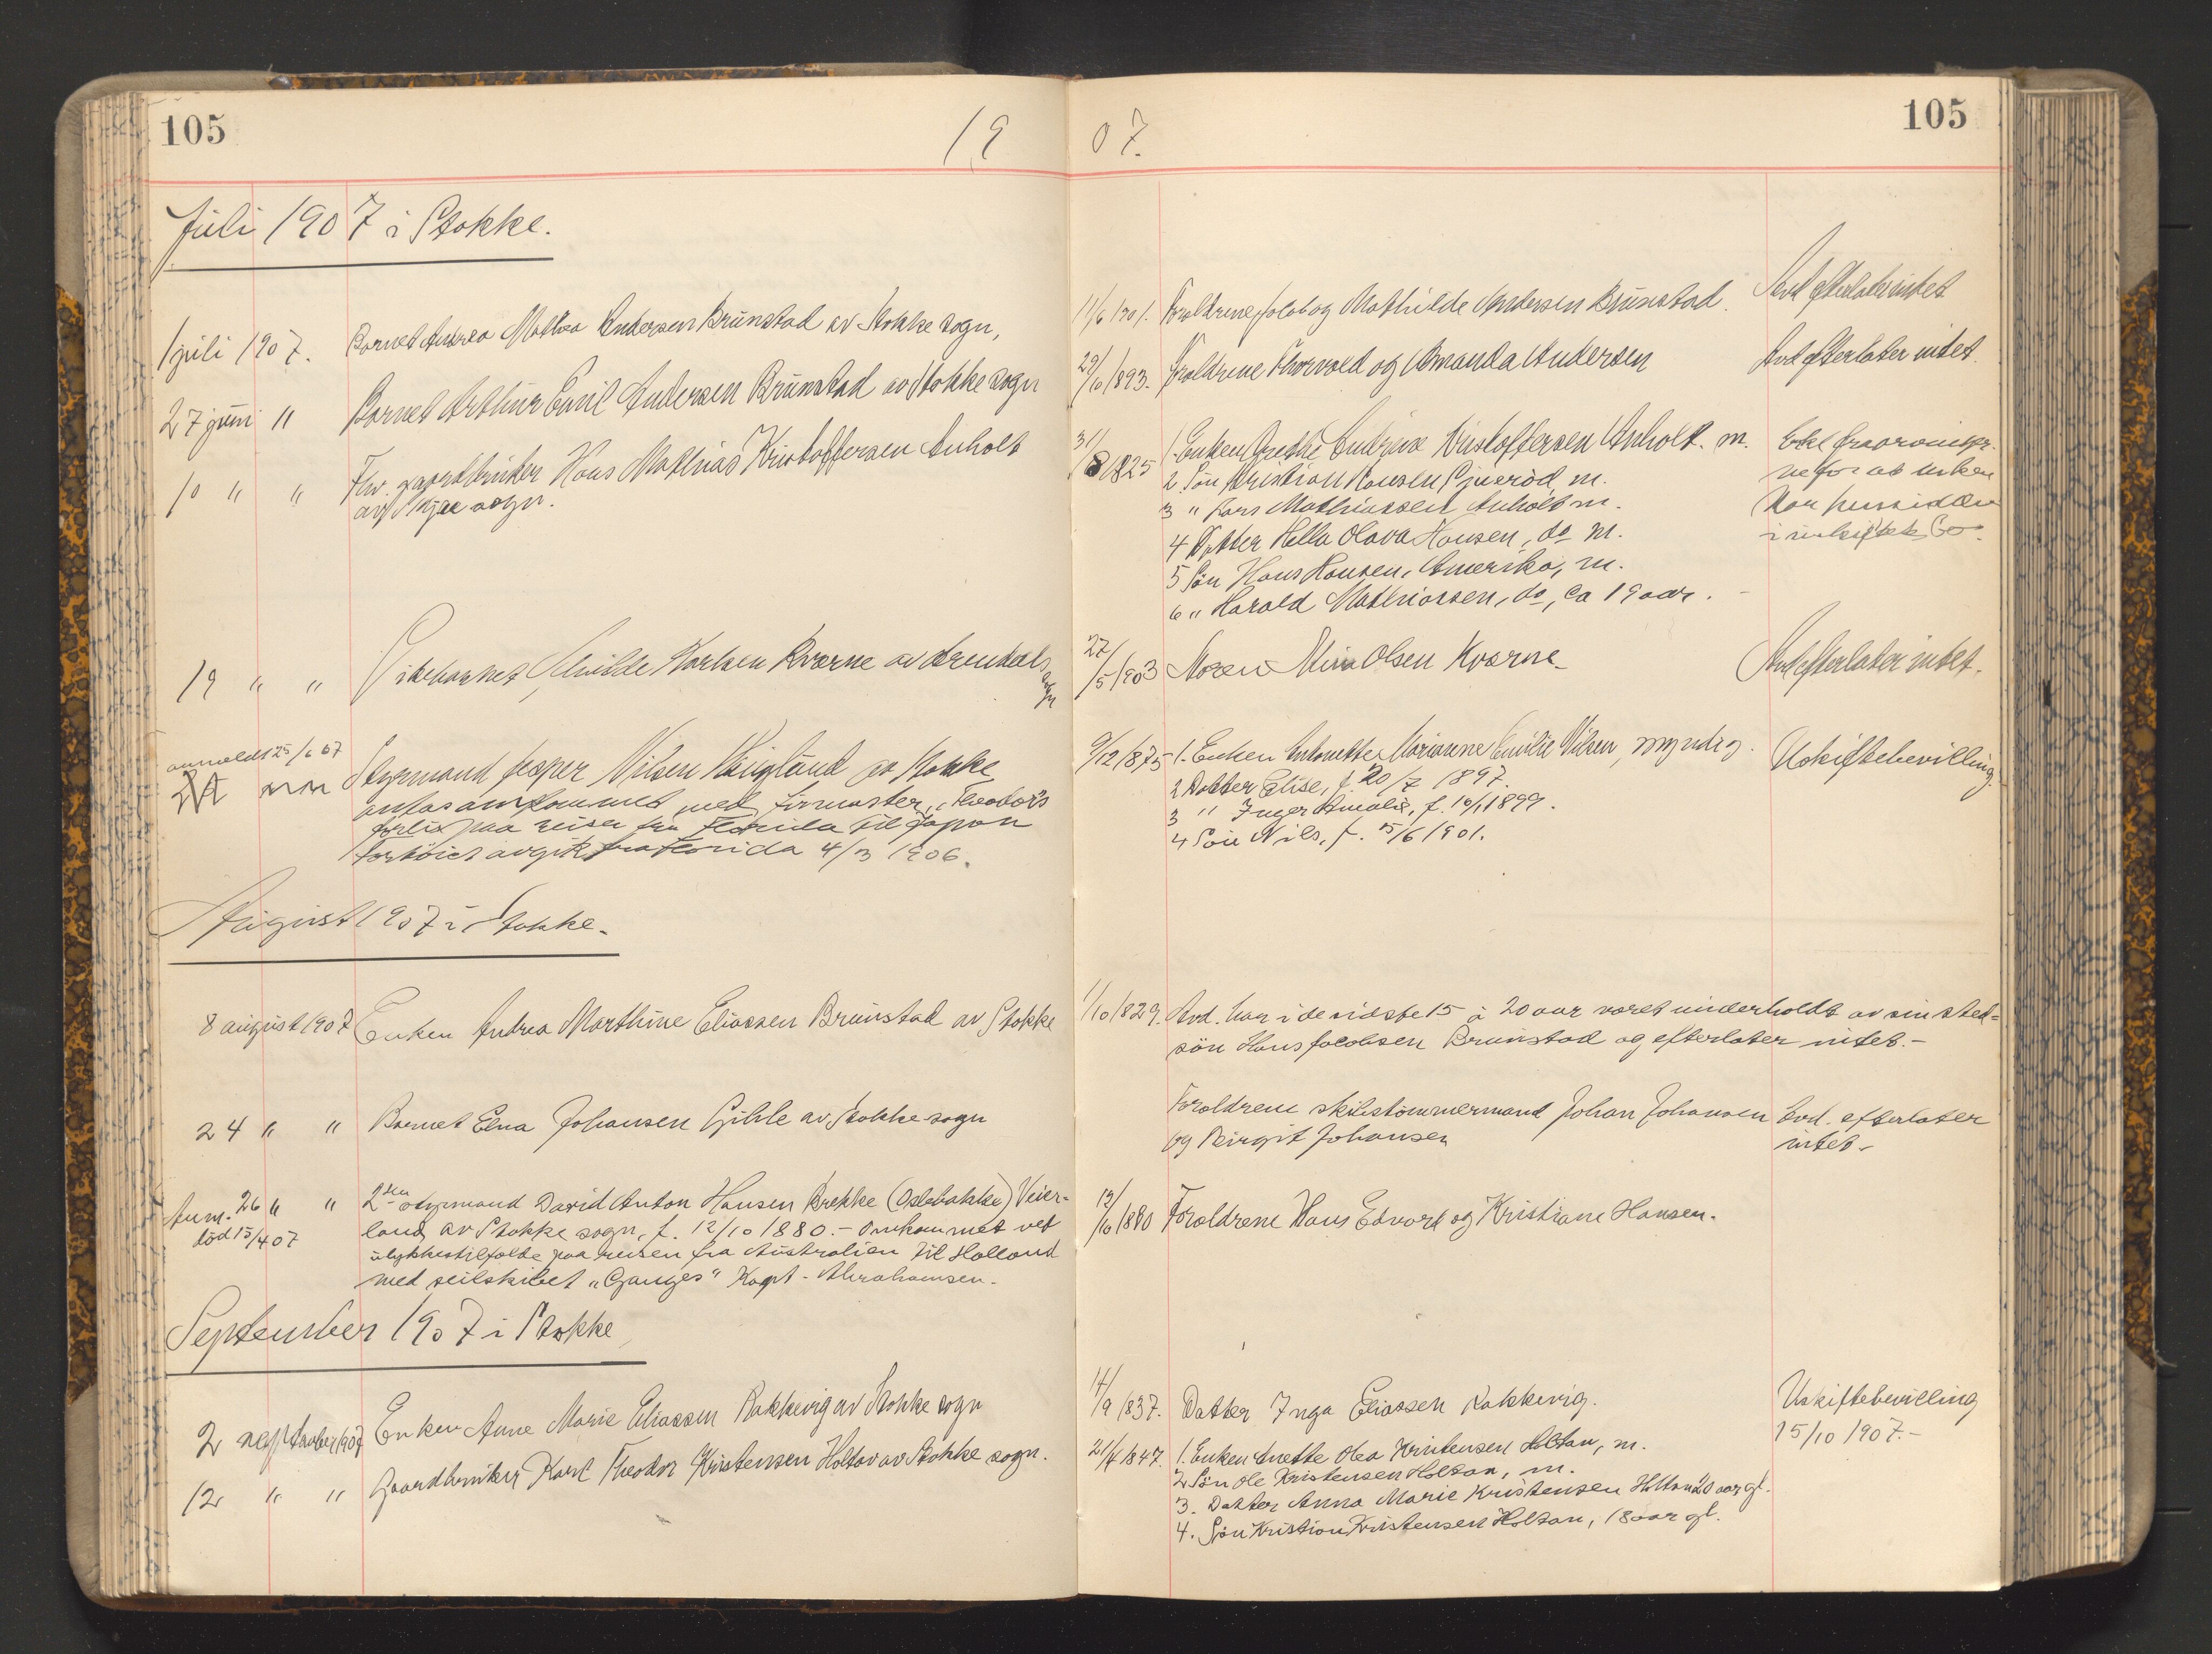 105
1907.
105
Juli 1907 i Stokke.
1 juli 1907. Barnet Andrea Mathea Andersen Brunstad av Stokke sogn,
11/6 1901. Forældrene Jakob og Mathilde Andersen Brunstad.
Avd efterlater intet
27 juni " Barnet Arthur Emil Andersen Brunstad av Stokke sogn
29/10 1893. Forældrene Thorvald og Amanda Andersen
Avd efterlater intet.
10 " " Fhv. gaardbruker Hans Mathias Kristoffersen Anholt
av Skjee sogn.
31/8 1825 1. Enken Andrine Kristoffersen Anholt. m.
2. Søn Kristian Hansen Gjuerød m.
3 " Lars Mathiassen Anholt m.
4 Datter Hella Olava Hansen, do m.
5 Søn Hans Hansen, Amerika, m.
6 " Harald Mathiassen, do, ca 19 aar.
ne for at enken
har hensidden
i uskiftet bo.
19 " " Pikebarnet Mathilde Karlsen Kværne av Arendals
sogn
27/5 1903 Moren Mina Olsen Kværne
Avd efterlater intet.
anmeldt 25/6 07
Styrmand Jesper Nilsen Haugland av Stokke
antas omkommet med firmaster "Theodor"s
forlis paa reisen fra Florida til Japan
Fartøiet avgik fra Florida 4/3 1906.
9/12 1875 1. Enken Antonette Marianne Emilie Nilsen, myndig.
2 Datter Elise, f. 20/7 1897.
3 " Inger Amalie, f. 10/1 1899.
4 Søn Nils, f. 5/6 1901.
Uskiftebevilling.
August 1907 i Stokke.
8 august 1907 Enken Andrea Marthine Eliassen Brunstad av Stokke
1/10 1829. Avd. har i de sidste 15 à 20 aar været underholdt av sin sted=
søn Hans Jacobsen Brunstad og efterlater intet.-
24 " " Barnet Elna Johansen Gihle av Stokke sogn
Forældrene skibstømmermand Johan Johansen
og Birgit Johansen
Avd. efterlater
intet-
Anm. 26 " "
død 15/4 07
2den styrmand David Anton Hansen Brekke (Østebakke) Veier=
land av Stokke sogn, f. 12/10 1880.- Omkommet ved
ulykkestilfælde paa reisen fra Australien til Holland
med seilskibet "Ganges" Kapt. Abrahamsen.
12/10 1880 Forældrene Hans Edvart og Kristiane Hansen.
September 1907 i Stokke
2 september 1907 Enken Anne Marie Eliassen Rakkevig av Stokke sogn
14/9 1837. Datter Inga Eliassen Rakkevig.
Uskiftebevilling
15/10 1907.-
12 " " Gaardbruker Karl Theodor Kristensen Holtan av Stokke sogn.
21/4 1847. 1. Enken Anette Olea Kristensen Holtan, m.
2 Søn Ole Kristensen Holtan, m.
3. Datter Anna Marie Kristensen Holtan 20 aar gl.
4. Søn Kristian Kristensen Holtan, 18 aar gl.